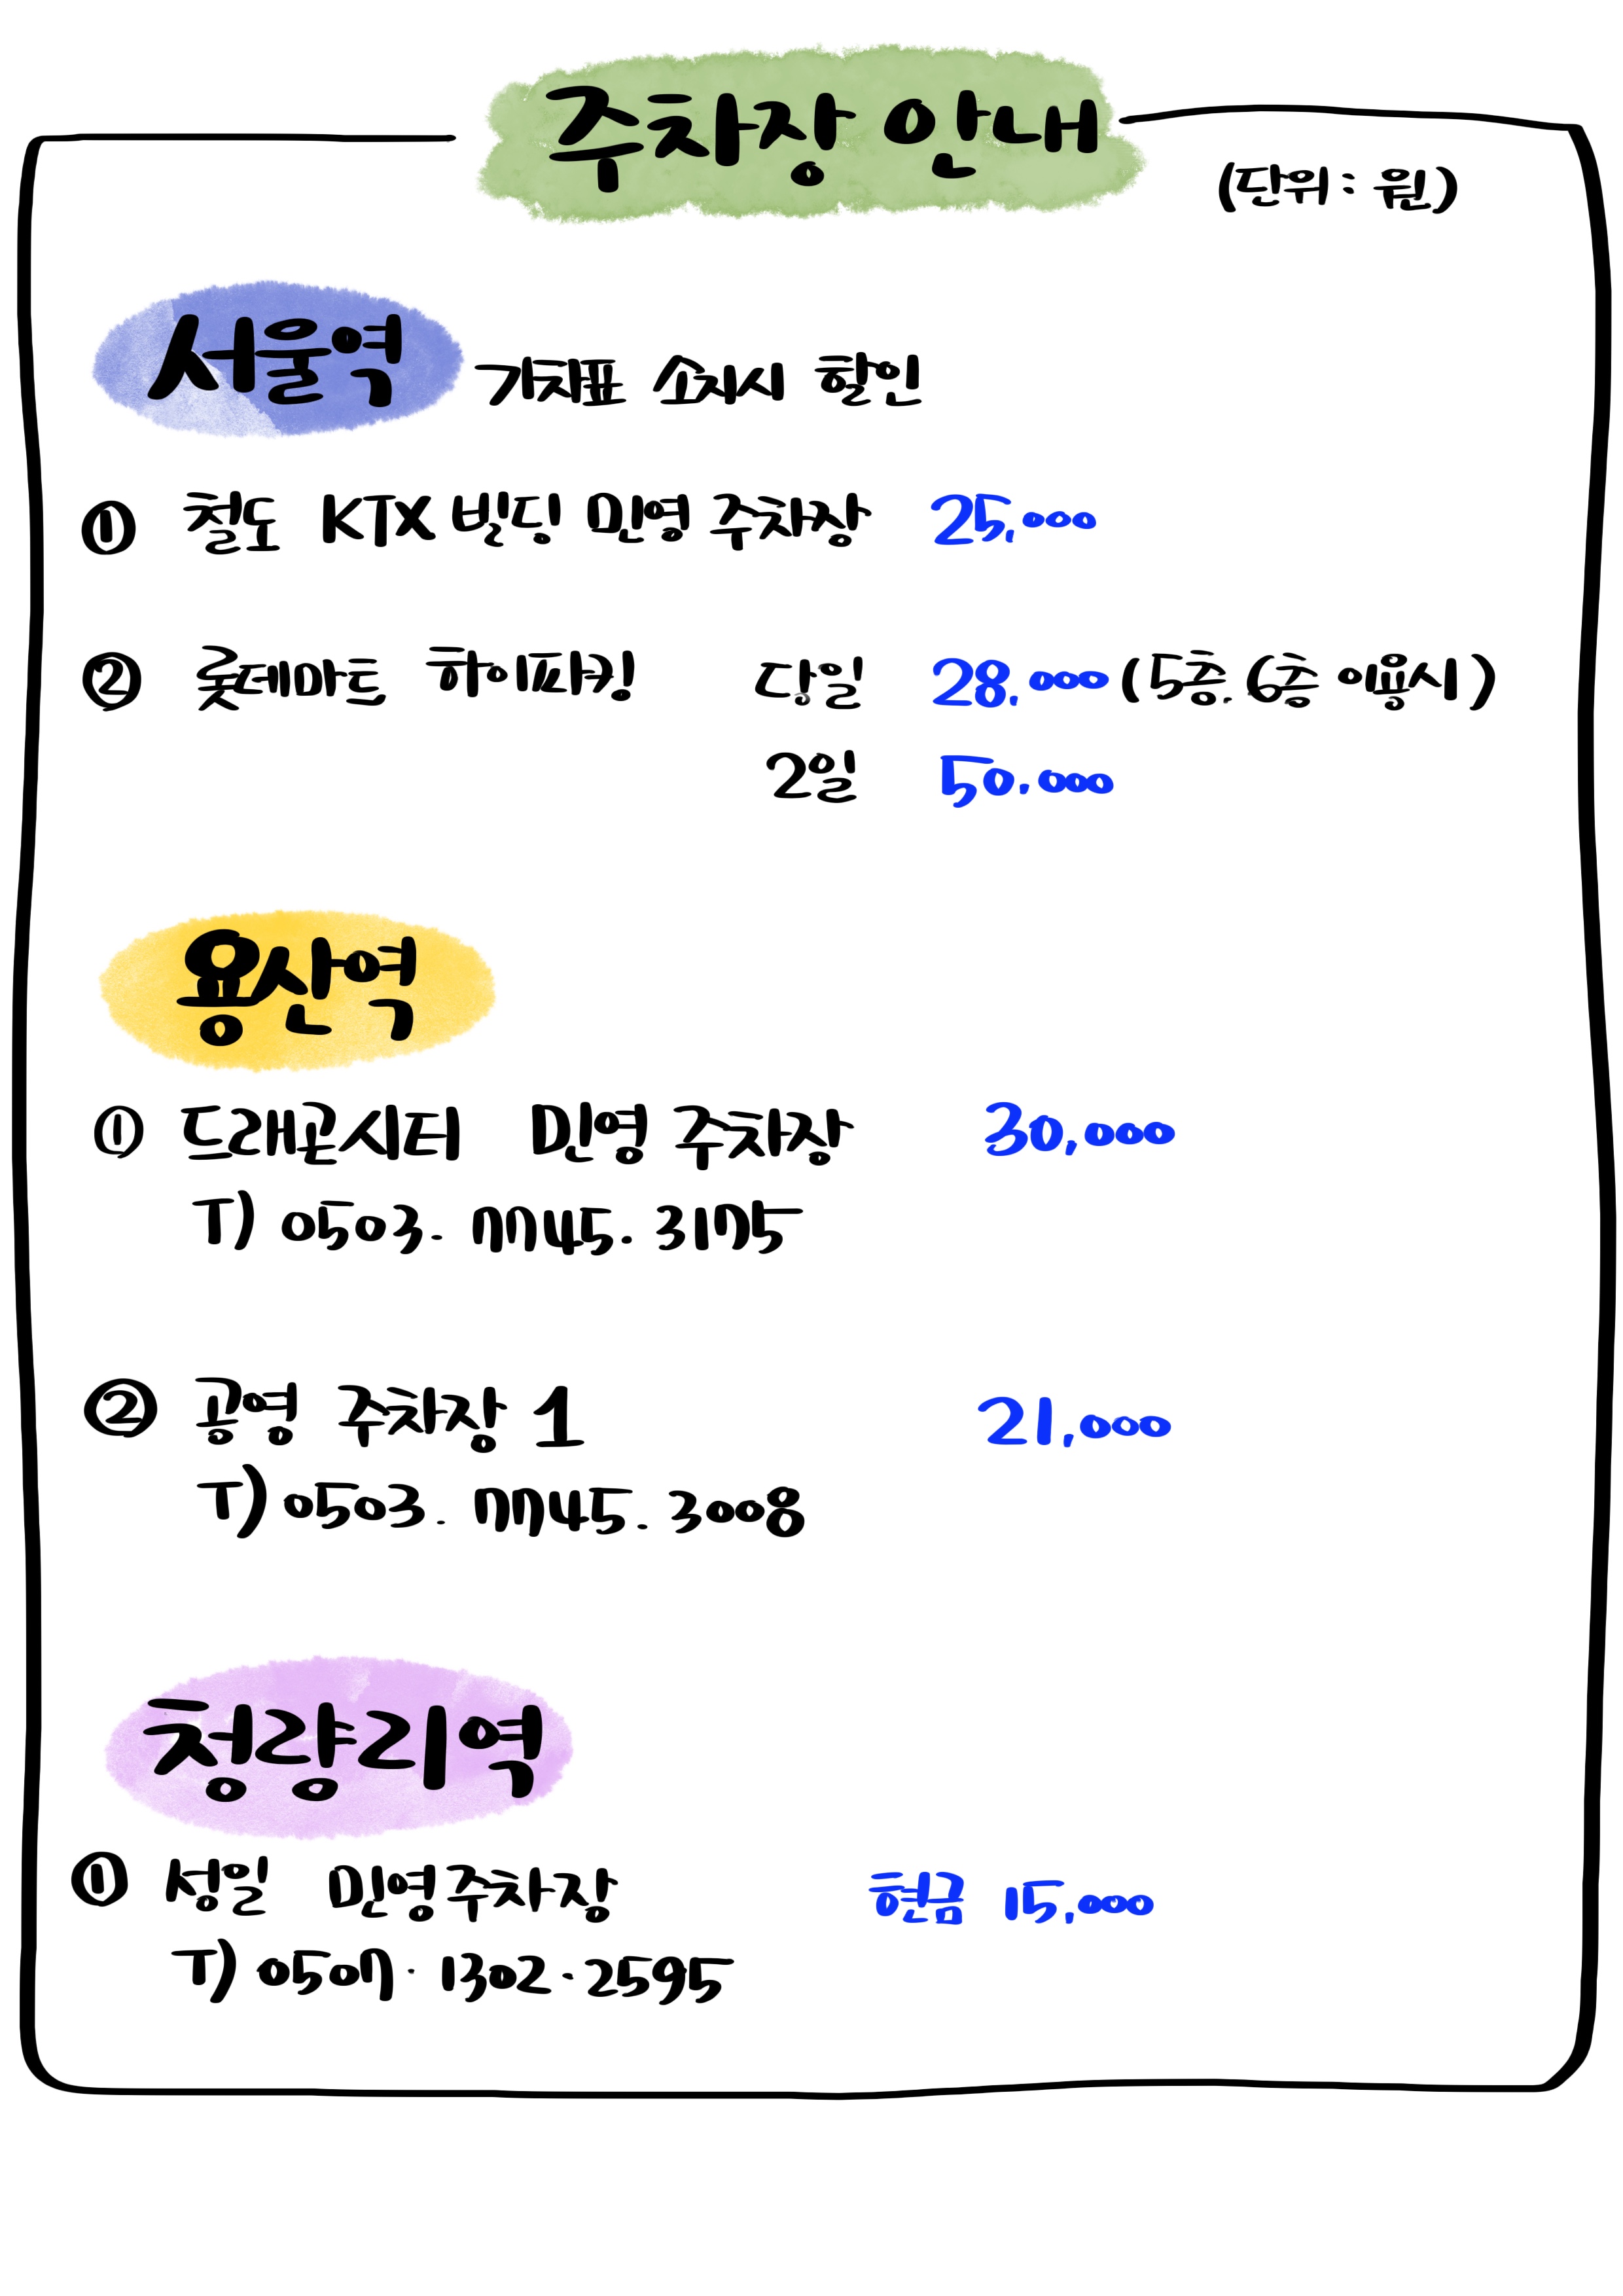 주차장 안내
(단위 : 원)
서울역 기차표 소지시 할인
① 철도 KTX 빌딩 민영 주차장 25,000
② 롯데마트 하이파킹 당일 28,000 (5층, 6층 이용시)
2일 50,000
용산역
① 드래곤시티 민영 주차장 30,000
T) 0503. 7745. 3175
② 공영 주차장 1 21,000
T) 0503. 7745. 3008
청량리역
① 성일 민영주차장 현금 15,000
T) 0507. 1302. 2595